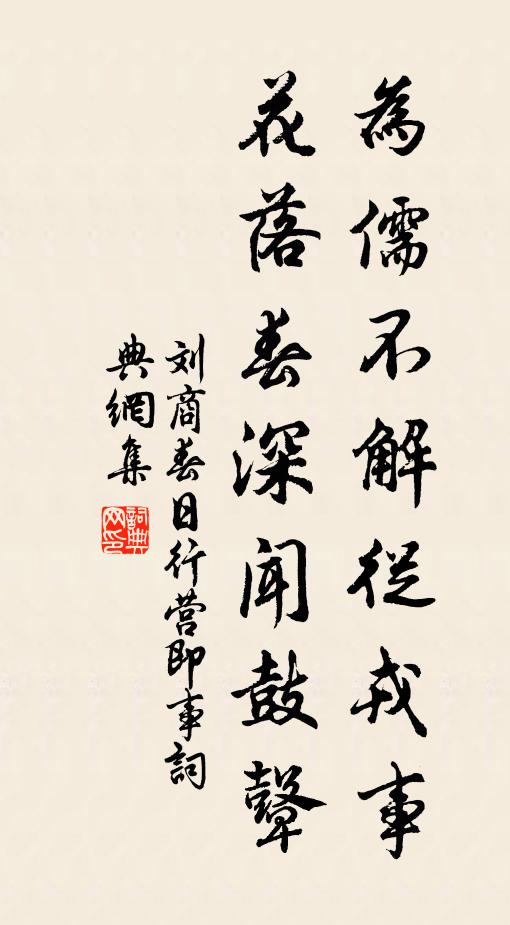 為儒不解從戎事
花落春深聞鼓鼙
刘商春日行营即事詞
典網集
詞典
网印